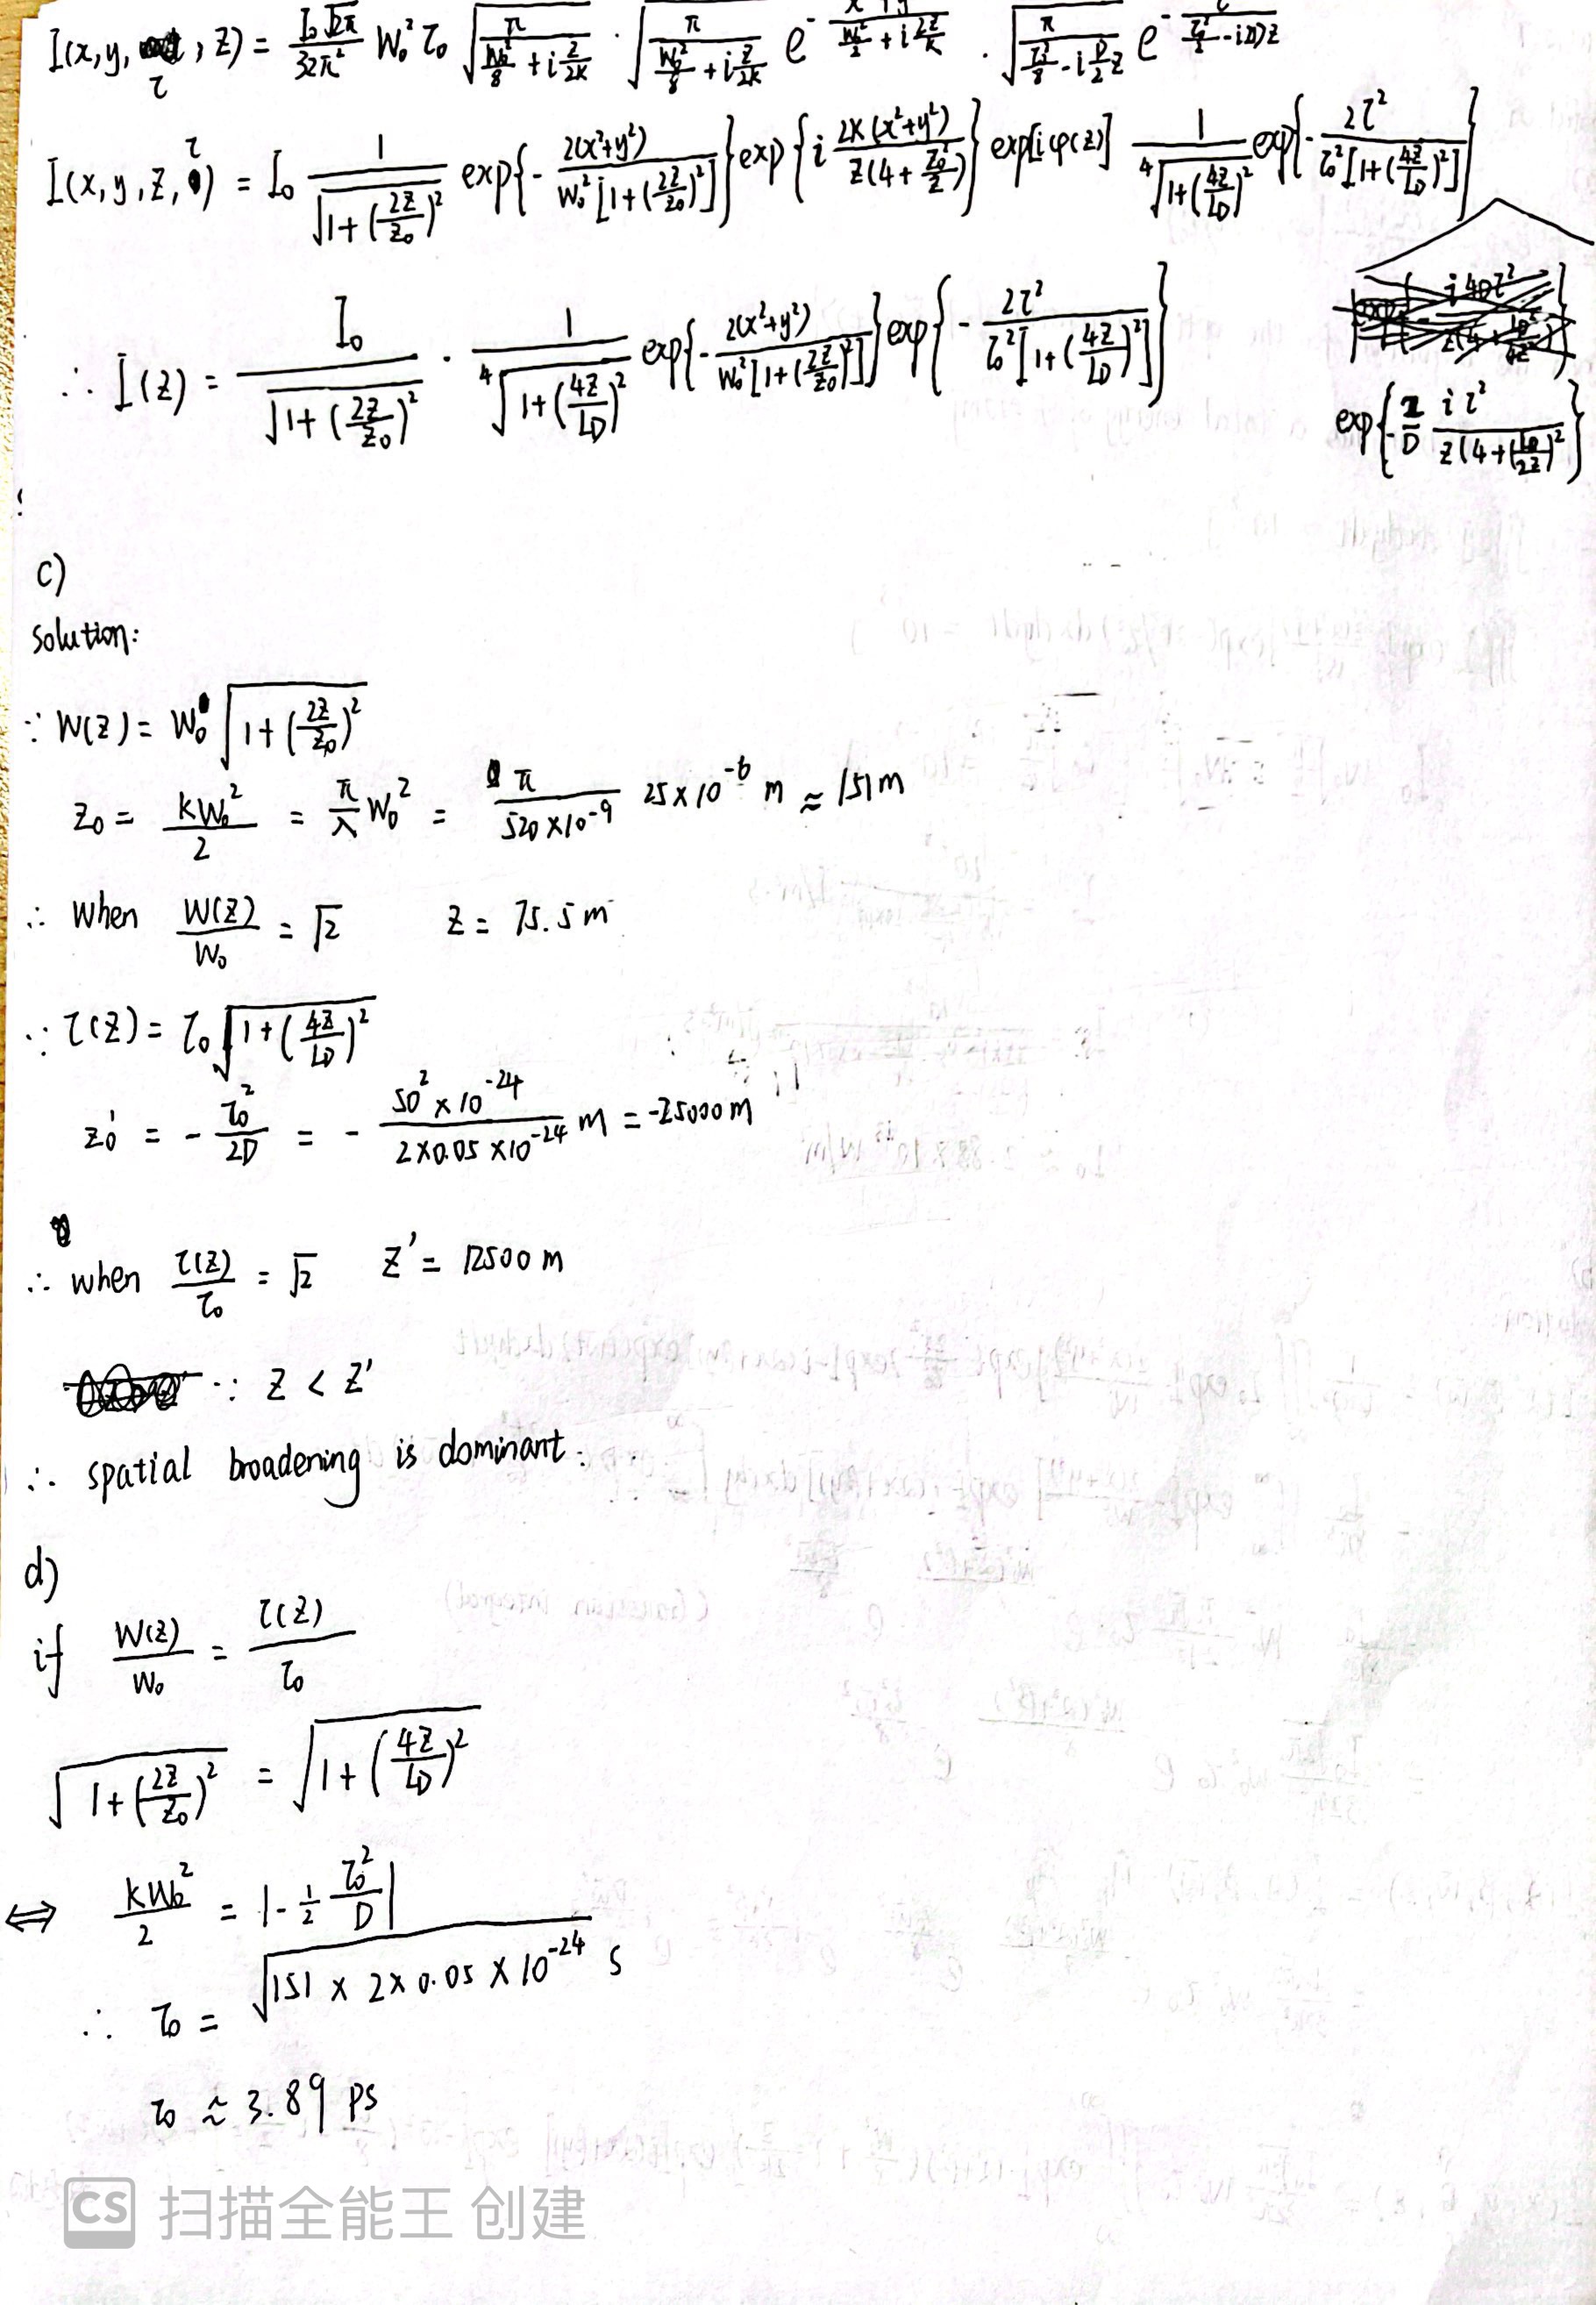 I(x,y,τ,z) = I₀√2π/32π² W₀² τ₀ √(π/(W₀²/8 + i z/2k)) · √(π/(W₀²/8 + i z/2k)) e^(-(x²+y²)/(W₀²/2 + i 2z/k)) · √(π/(τ₀²/8 - i D/2 z)) e^(-τ²/(τ₀²/2 - i2Dz))
I(x,y,z,τ) = I₀ 1/√(1+(2z/z₀)²) exp{-2(x²+y²)/W₀²[1+(2z/z₀)²]} exp{i 2k(x²+y²)/z(4+z₀²/z)} exp[iφ(z)] 1/⁴√(1+(4z/LD)²) exp{-2τ²/τ₀²[1+(4z/LD)²]}
exp{-2/D iτ²/z(4+(LD/2z)²}
∴ I(z) = I₀/√(1+(2z/z₀)²) · 1/⁴√(1+(4z/LD)²) exp{-2(x²+y²)/W₀²[1+(2z/z₀)²]} exp{-2τ²/τ₀²[1+(4z/LD)²]}
c)
solution:
∵ W(z) = W₀ √(1+(2z/z₀)²)
z₀ = kW₀²/2 = π/λ W₀² = π/520×10⁻⁹ 25×10⁻⁶ m ≈ 151m
∴ when W(z)/W₀ = √2 z = 75.5m
∵ τ(z) = τ₀√(1+(4z/LD)²)
z₀' = -τ₀²/2D = -50²×10⁻²⁴/2×0.05×10⁻²⁴ m = -25000m
∴ when τ(z)/τ₀ = √2 z' = 12500m
∵ z < z'
∴ spatial broadening is dominant.
d)
if W(z)/W₀ = τ(z)/τ₀
√(1+(2z/z₀)²) = √(1+(4z/LD)²)
⇔ kW₀²/2 = |-1/2 τ₀²/D|
∴ τ₀ = √(151×2×0.05×10⁻²⁴) s
τ₀ ≈ 3.89 ps
CS 扫描全能王 创建